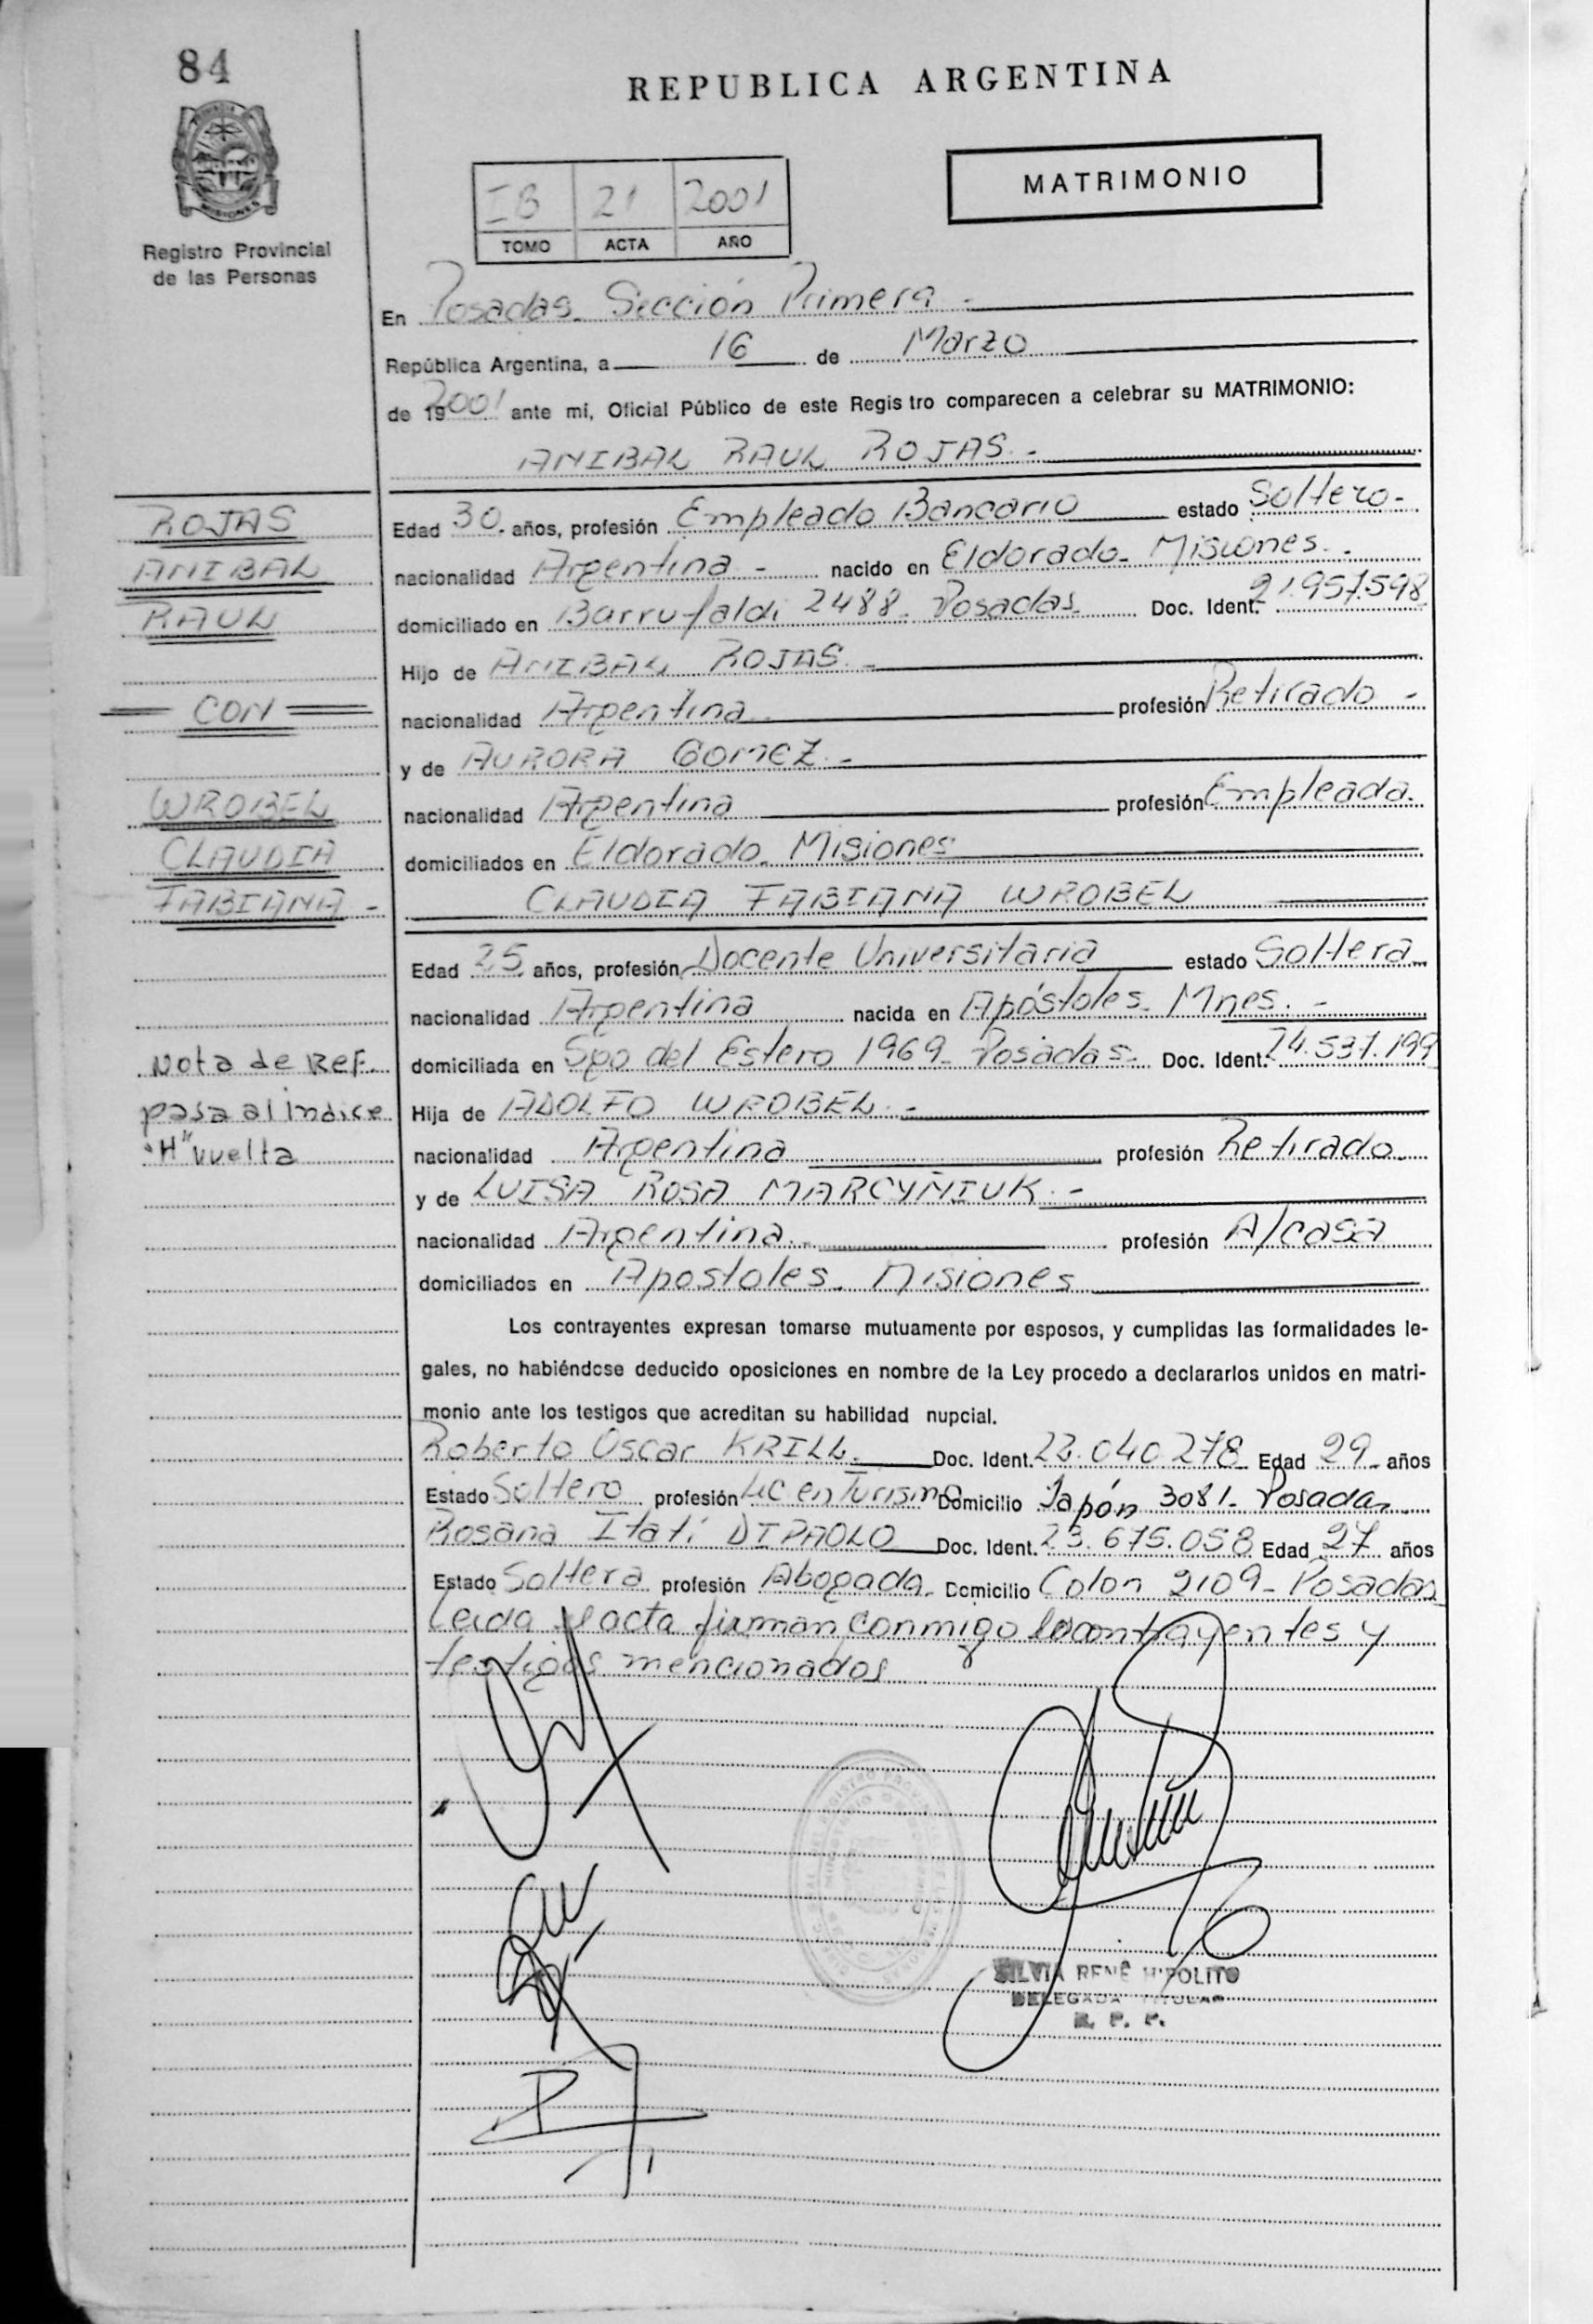 84
REPUBLICA ARGENTINA
MISIONES
Registro Provincial
de las Personas
IB 21 2001
TOMO ACTA AÑO
MATRIMONIO
En Posadas. Sección Primera.-
República Argentina, a 16 de Marzo
de 19 2001 ante mí, Oficial Público de este Regis tro comparecen a celebrar su MATRIMONIO:
ANIBAL RAUL ROJAS.-
ROJAS
ANIBAL
RAUL
CON
WROBEL
CLAUDIA
FABIANA -
Edad 30. años, profesión Empleado Bancario estado Soltero-
nacionalidad Argentina - nacido en Eldorado. Misiones.-
domiciliado en Barrufaldi 2488. Posadas. Doc. Ident. 21.957.598
Hijo de ANIBAL ROJAS.-
nacionalidad Argentina profesión Retirado -
y de AURORA GOMEZ.-
nacionalidad Argentina profesión Empleada.
domiciliados en Eldorado. Misiones
CLAUDIA FABIANA WROBEL
Edad 25 años, profesión Docente Universitaria estado Soltera
nacionalidad Argentina nacida en Apóstoles. Mnes.-
domiciliada en Sgo del Estero 1969- Posadas. Doc. Ident. 24.537.199
Hija de ADOLFO WROBEL.-
nacionalidad Argentina profesión Retirado.
y de LUISA ROSA MARCYÑIUK.-
nacionalidad Argentina. profesión A/casa
domiciliados en Apostoles. Misiones
Nota de Ref.
pasa al indice
"H" vuelta
Los contrayentes expresan tomarse mutuamente por esposos, y cumplidas las formalidades le-
gales, no habiéndose deducido oposiciones en nombre de la Ley procedo a declararlos unidos en matri-
monio ante los testigos que acreditan su habilidad nupcial.
Roberto Oscar KRILL. Doc. Ident. 22.040.278 Edad 29 años
Estado Soltero profesión Lic en Turismo Domicilio Japón 3081- Posadas
Rosana Itatí DI PAOLO Doc. Ident. 23.675.058 Edad 27 años
Estado Soltera profesión Abogada. Domicilio Colon 2109- Posadas
Leida el acta firman conmigo los contrayentes y
testigos mencionados
SILVIA RENÉ HIPOLITO
DELEGADA TITULAR
R. P. P.